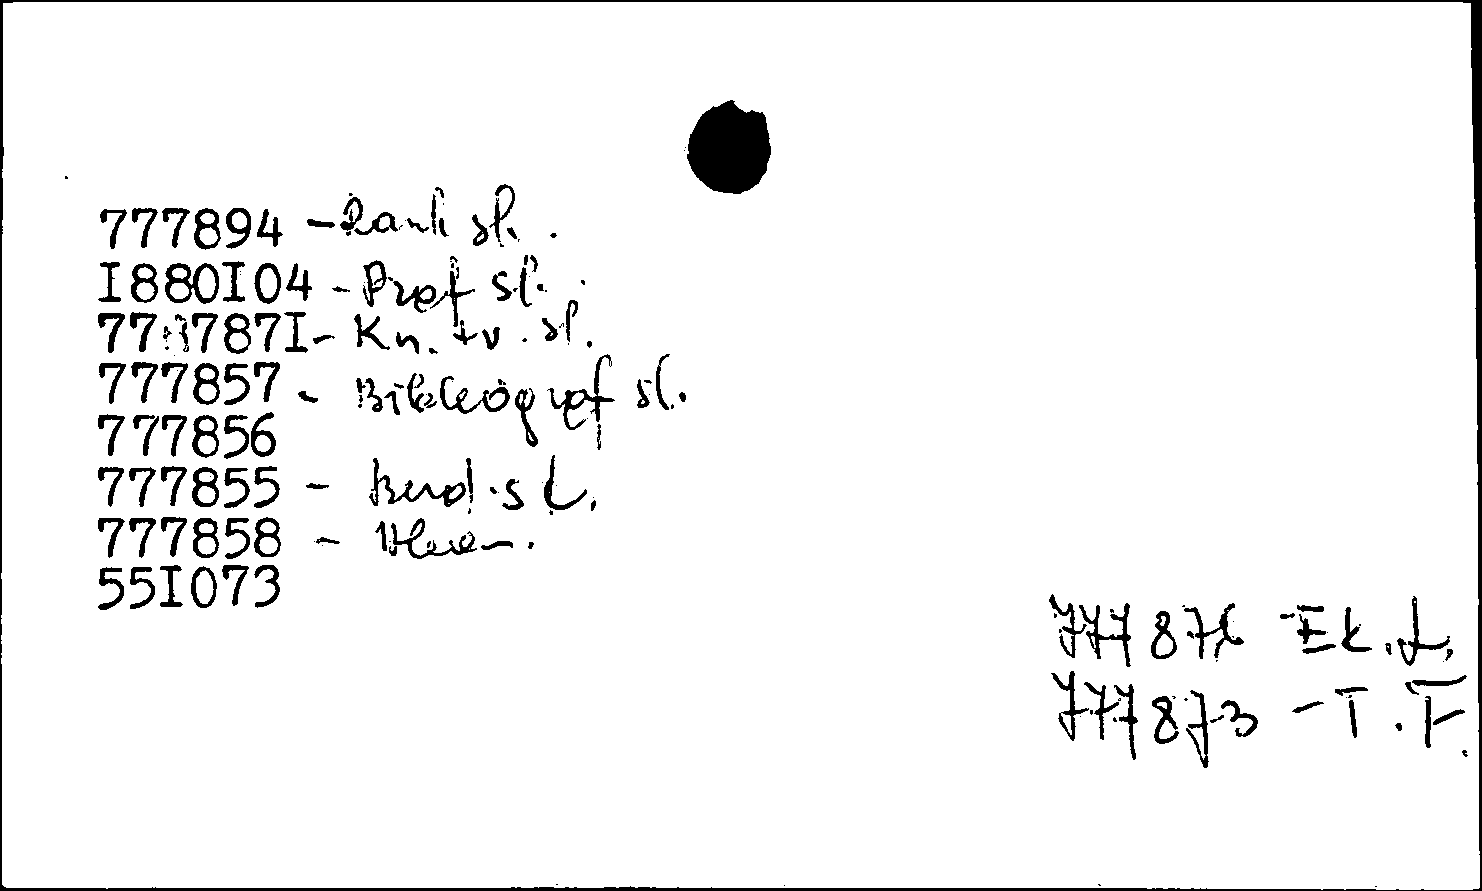 777894 - Rank sl.
I880I04 - Prof sl.
77 787I - Kn. tv. sl.
777857 - Bibleograf sl.
777856
777855 - Bend. sl.
777858 -
55I073
77787 - Ek. f.
777873 - T. F.